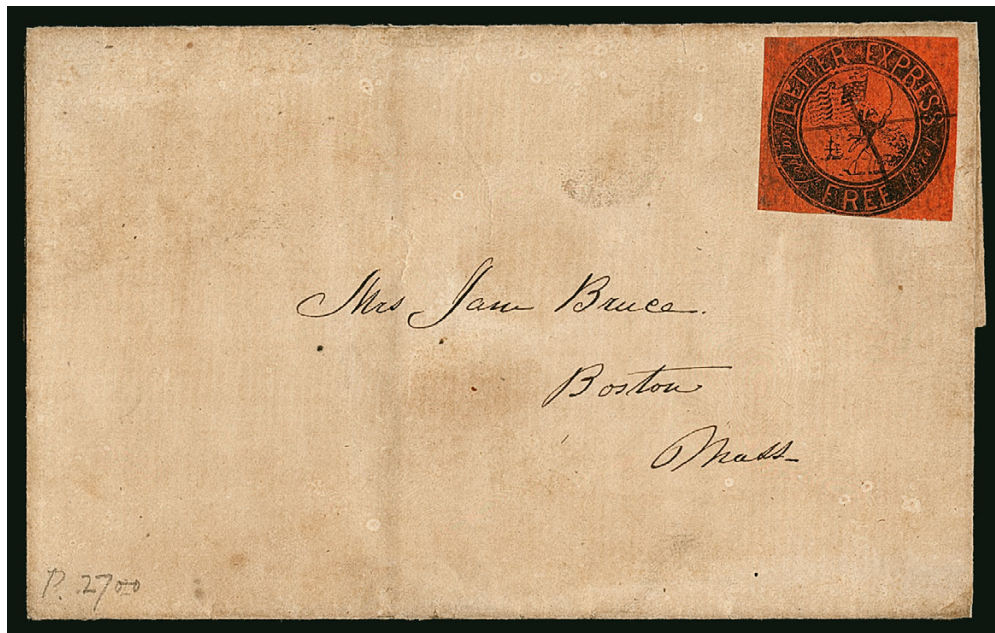 LETTER EXPRESS
FREE
Mrs Jane Bruce.
Boston
Mass
P. 2700